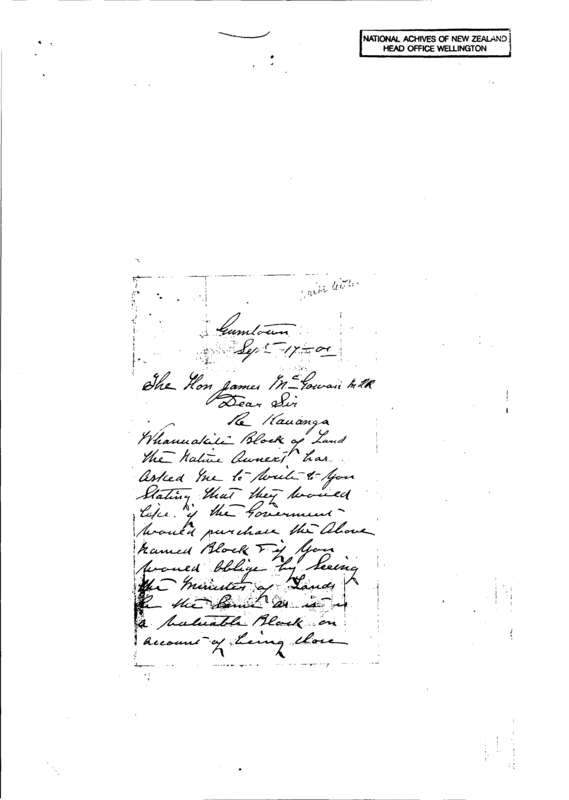 NATIONAL ACHIVES OF NEW ZEALAND
HEAD OFFICE WELLINGTON
Gumtown
Sept 17
The Hon James McGowan M.H.R
Dear Sir
Re Kauanga
Whanuakite Block of Land
the Native Owners has
asked me to write to you
Stating that they would
like if the Goverment
would purchase the Above
named Block & if you
would oblige by Seeing
the Minister of Lands
Re the Same as it is
a valuable Block on
account of being close